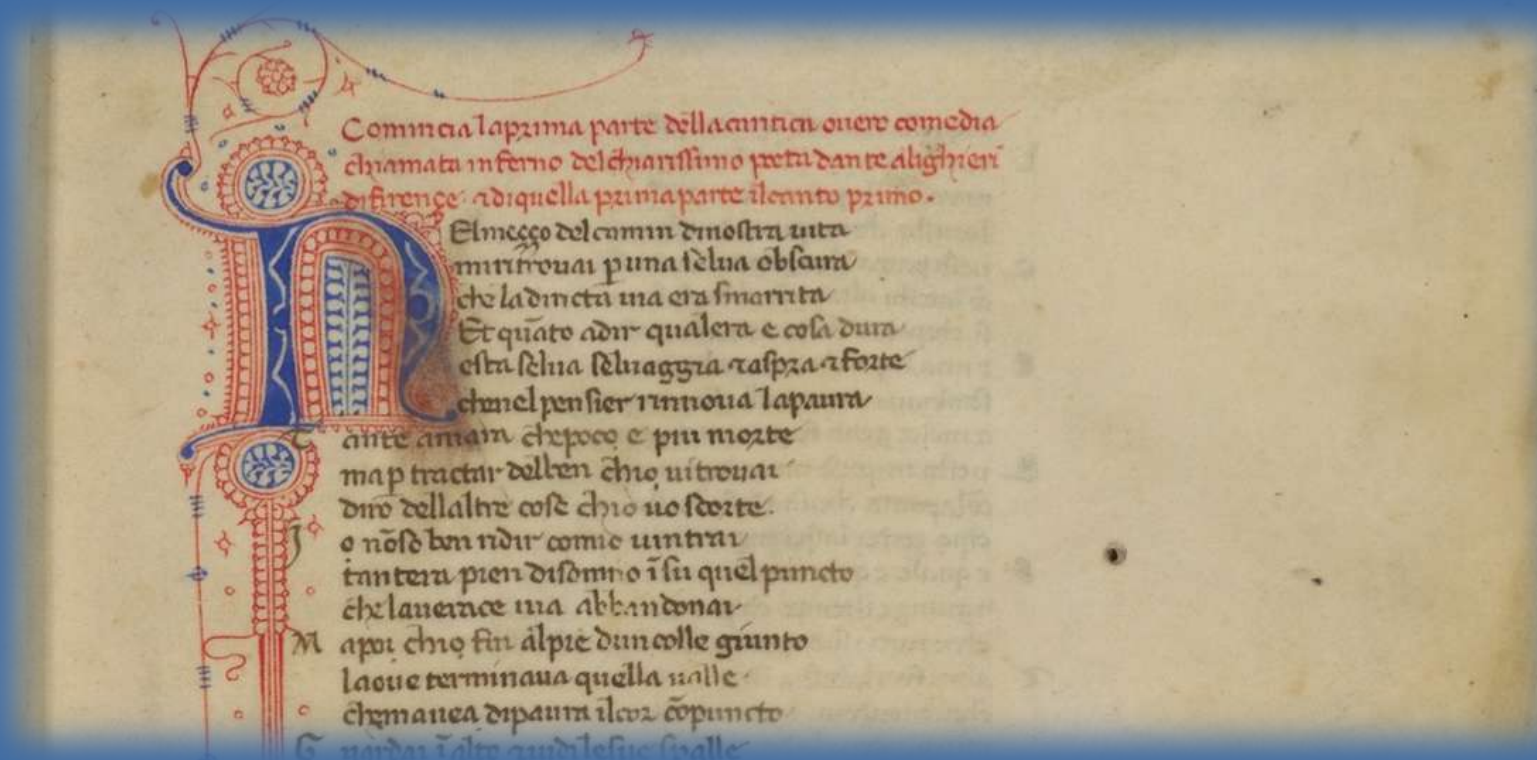 Comincia la prima parte della cantica overo comedia
chiamata inferno del chiarissimo poeta dante alighieri
di firençe ⁊ di quella prima parte il canto primo.
NEl meççο del camin di nostra uita
mi ritrouai p̄ una selua obscura
che la diricta uia era smarrita
Et quāto a dir qual era e cosa dura
esta selua seluaggia ⁊ aspra ⁊ forte
che nel pensier rinnoua la paura
Tante amara che poco e piu morte
ma p̄ tractar del ben chio ui trouai
diro dellaltre cose chio uo scorte.
Io nō so ben ridir comio uintrai
tantera pien di sonno ī su quel puncto
che la uerace uia abbandonai
Ma poi chio fui al pie dun colle giunto
la oue terminaua quella ualle
che mauea di paura il cor cōpuncto
Guardai ī alto ⁊ uidi le sue spalle